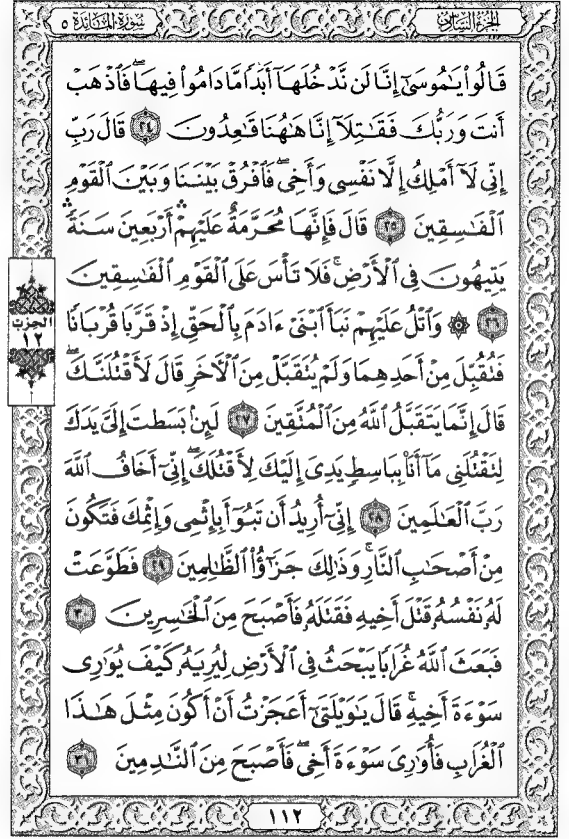 الجزء السادس
سورة المائدة ٥
قَالُوا۟ يَـٰمُوسَىٰٓ إِنَّا لَن نَّدْخُلَهَآ أَبَدًا مَّا دَامُوا۟ فِيهَا ۖ فَٱذْهَبْ
أَنتَ وَرَبُّكَ فَقَـٰتِلَآ إِنَّا هَـٰهُنَا قَـٰعِدُونَ ٢٤ قَالَ رَبِّ
إِنِّى لَآ أَمْلِكُ إِلَّا نَفْسِى وَأَخِى ۖ فَٱفْرُقْ بَيْنَنَا وَبَيْنَ ٱلْقَوْمِ
ٱلْفَـٰسِقِينَ ٢٥ قَالَ فَإِنَّهَا مُحَرَّمَةٌ ۛ عَلَيْهِمْ ۛ أَرْبَعِينَ سَنَةً ۛ
يَتِيهُونَ فِى ٱلْأَرْضِ ۚ فَلَا تَأْسَ عَلَى ٱلْقَوْمِ ٱلْفَـٰسِقِينَ
٢٦ ۞ وَٱتْلُ عَلَيْهِمْ نَبَأَ ٱبْنَىْ ءَادَمَ بِٱلْحَقِّ إِذْ قَرَّبَا قُرْبَانًا
الحزب
١٢
فَتُقُبِّلَ مِنْ أَحَدِهِمَا وَلَمْ يُتَقَبَّلْ مِنَ ٱلْـَٔاخَرِ قَالَ لَأَقْتُلَنَّكَ ۖ
قَالَ إِنَّمَا يَتَقَبَّلُ ٱللَّهُ مِنَ ٱلْمُتَّقِينَ ٢٧ لَئِنۢ بَسَطتَ إِلَىَّ يَدَكَ
لِتَقْتُلَنِى مَآ أَنَا۠ بِبَاسِطٍ يَدِىَ إِلَيْكَ لِأَقْتُلَكَ ۖ إِنِّىٓ أَخَافُ ٱللَّهَ
رَبَّ ٱلْعَـٰلَمِينَ ٢٨ إِنِّىٓ أُرِيدُ أَن تَبُوٓأَ بِإِثْمِى وَإِثْمِكَ فَتَكُونَ
مِنْ أَصْحَـٰبِ ٱلنَّارِ ۚ وَذَٰلِكَ جَزَٰٓؤُا۟ ٱلظَّـٰلِمِينَ ٢٩ فَطَوَّعَتْ
لَهُۥ نَفْسُهُۥ قَتْلَ أَخِيهِ فَقَتَلَهُۥ فَأَصْبَحَ مِنَ ٱلْخَـٰسِرِينَ ٣٠
فَبَعَثَ ٱللَّهُ غُرَابًا يَبْحَثُ فِى ٱلْأَرْضِ لِيُرِيَهُۥ كَيْفَ يُوَٰرِى
سَوْءَةَ أَخِيهِ ۚ قَالَ يَـٰوَيْلَتَىٰٓ أَعَجَزْتُ أَنْ أَكُونَ مِثْلَ هَـٰذَا
ٱلْغُرَابِ فَأُوَٰرِىَ سَوْءَةَ أَخِى ۖ فَأَصْبَحَ مِنَ ٱلنَّـٰدِمِينَ ٣١
١١٢